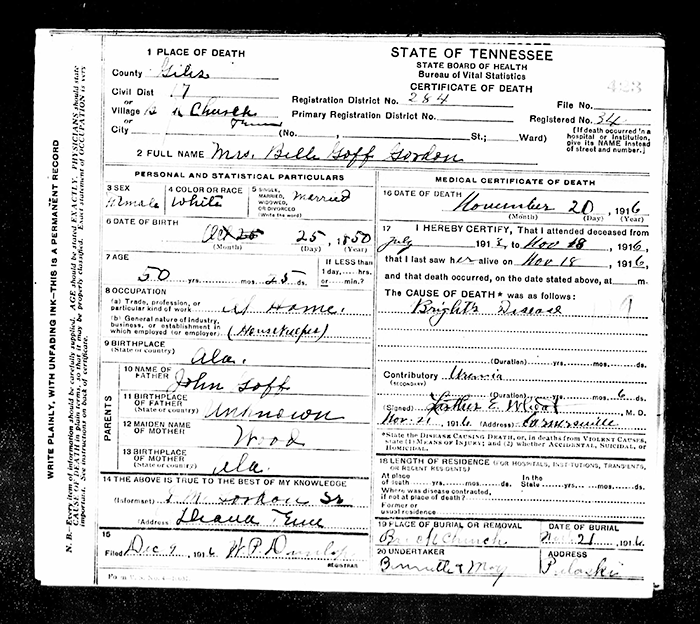 1 PLACE OF DEATH
County Giles
Civil Dist 17
or
Village B R Church
or
City
(No. , St.; Ward)
STATE OF TENNESSEE
STATE BOARD OF HEALTH
Bureau of Vital Statistics
CERTIFICATE OF DEATH
Registration District No. 284
File No.
Primary Registration District No.
Registered No. 34
[If death occurred in a hospital or Institution, give its NAME instead of street and number.]
2 FULL NAME Mrs. Belle Goff Gordon
PERSONAL AND STATISTICAL PARTICULARS
3 SEX Female
4 COLOR OR RACE White
5 SINGLE, MARRIED, WIDOWED, OR DIVORCED (Write the word) Married
6 DATE OF BIRTH Oct 25 25, 1850
(Month) (Day) (Year)
7 AGE 50 yrs. mos. 25 ds.
If LESS than 1 day, hrs. or min.?
8 OCCUPATION
(a) Trade, profession, or particular kind of work At Home.
(b) General nature of industry, business, or establishment in which employed (or employer) (Housekeeper)
9 BIRTHPLACE (State or country) Ala.
PARENTS
10 NAME OF FATHER John Goff
11 BIRTHPLACE OF FATHER (State or country) Unknown
12 MAIDEN NAME OF MOTHER Wood
13 BIRTHPLACE OF MOTHER (State or country) Ala.
14 THE ABOVE IS TRUE TO THE BEST OF MY KNOWLEDGE
(Informant) Gordon Sr
(Address) Diana Tenn
15
Filed Dec 9, 1916 W. P. Dunlap
REGISTRAR
MEDICAL CERTIFICATE OF DEATH
16 DATE OF DEATH November 20, 1916
(Month) (Day) (Year)
17 I HEREBY CERTIFY, That I attended deceased from
July 191, to Nov 18, 1916,
that I last saw her alive on Nov 18, 1916,
and that death occurred, on the date stated above, at m.
The CAUSE OF DEATH* was as follows:
Bright's Disease
(Duration) yrs. mos. ds.
Contributory (SECONDARY) Uremia
(Duration) yrs. mos. 6 ds.
(Signed) Luther E. M. D.
Nov. 21, 1916 (Address) Farmersville
*State the DISEASE CAUSING DEATH, or, in deaths from VIOLENT CAUSES, state (1) MEANS OF INJURY; and (2) whether ACCIDENTAL, SUICIDAL, or HOMICIDAL.
18 LENGTH OF RESIDENCE (FOR HOSPITALS, INSTITUTIONS, TRANSIENTS, OR RECENT RESIDENTS)
At place of death yrs. mos. ds. In the State yrs. mos. ds.
Where was disease contracted, if not at place of death?
Former or usual residence
19 PLACE OF BURIAL OR REMOVAL Church
DATE OF BURIAL Nov 21, 1916
20 UNDERTAKER Bennett & May
ADDRESS Pulaski
WRITE PLAINLY, WITH UNFADING INK—THIS IS A PERMANENT RECORD
N. B.—Every item of information should be carefully supplied. AGE should be stated EXACTLY. PHYSICIANS should state CAUSE OF DEATH in plain terms, so that it may be properly classified. Exact statement of OCCUPATION is very important. See instructions on back of certificate.